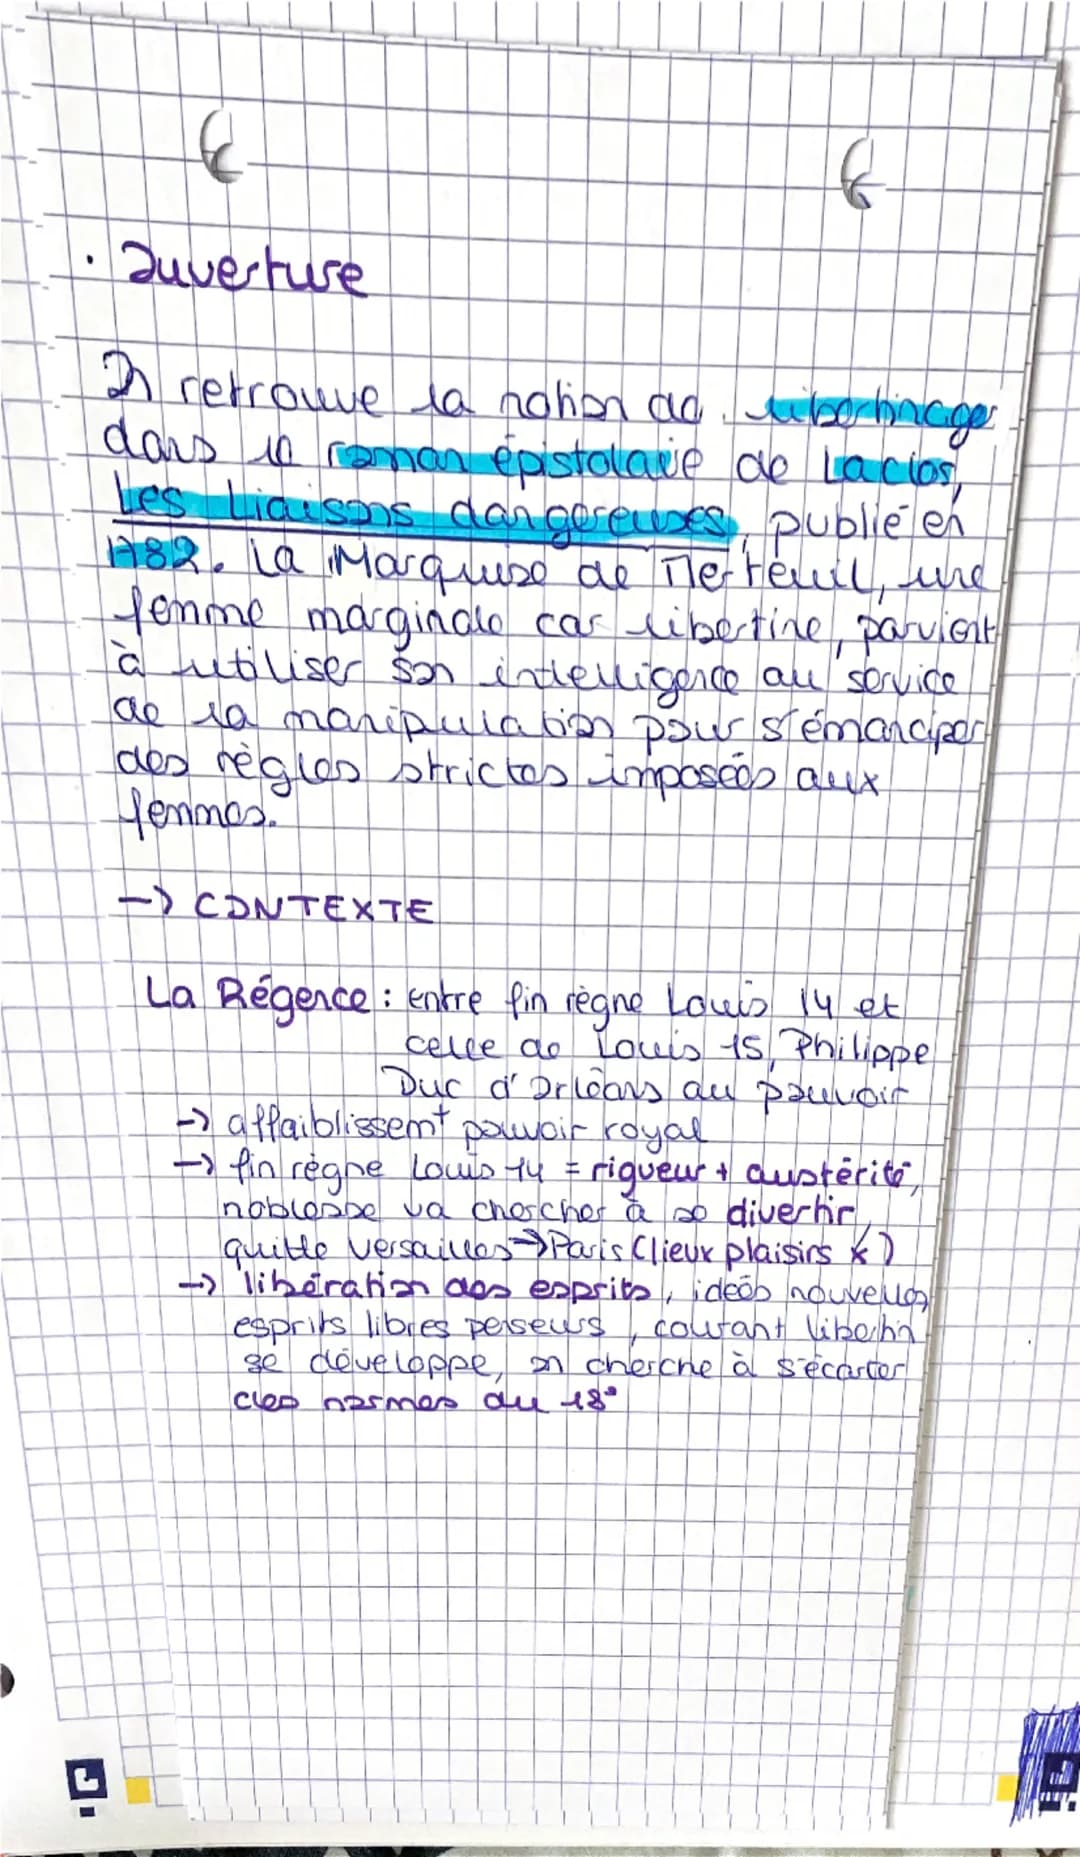 · Ouverture
On retrouve la notion de libertinage
dans le roman épistolaire de Laclos,
Les Liaisons dangereuses, publié en
1782. La Marquise de Merteuil, une
femme marginale car libertine, parvient
à utiliser son intelligence au service
de la manipulation pour s'émanciper
des règles strictes imposées aux
femmes.
-> CONTEXTE
La Régence : entre fin règne Louis 14 et
celle de Louis 15, Philippe
Duc d'Orléans au pouvoir
-> affaiblissemt pouvoir royal
-> fin règne Louis 14 = rigueur + austérité,
noblesse va chercher à se divertir,
quitte Versailles -> Paris (lieux plaisirs x)
-> libération des esprits, idées nouvelles,
esprits libres penseurs, courant libertin
se développe, on cherche à s'écarter
des normes du 18°